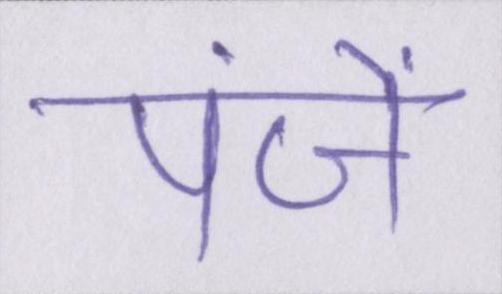 पंजें